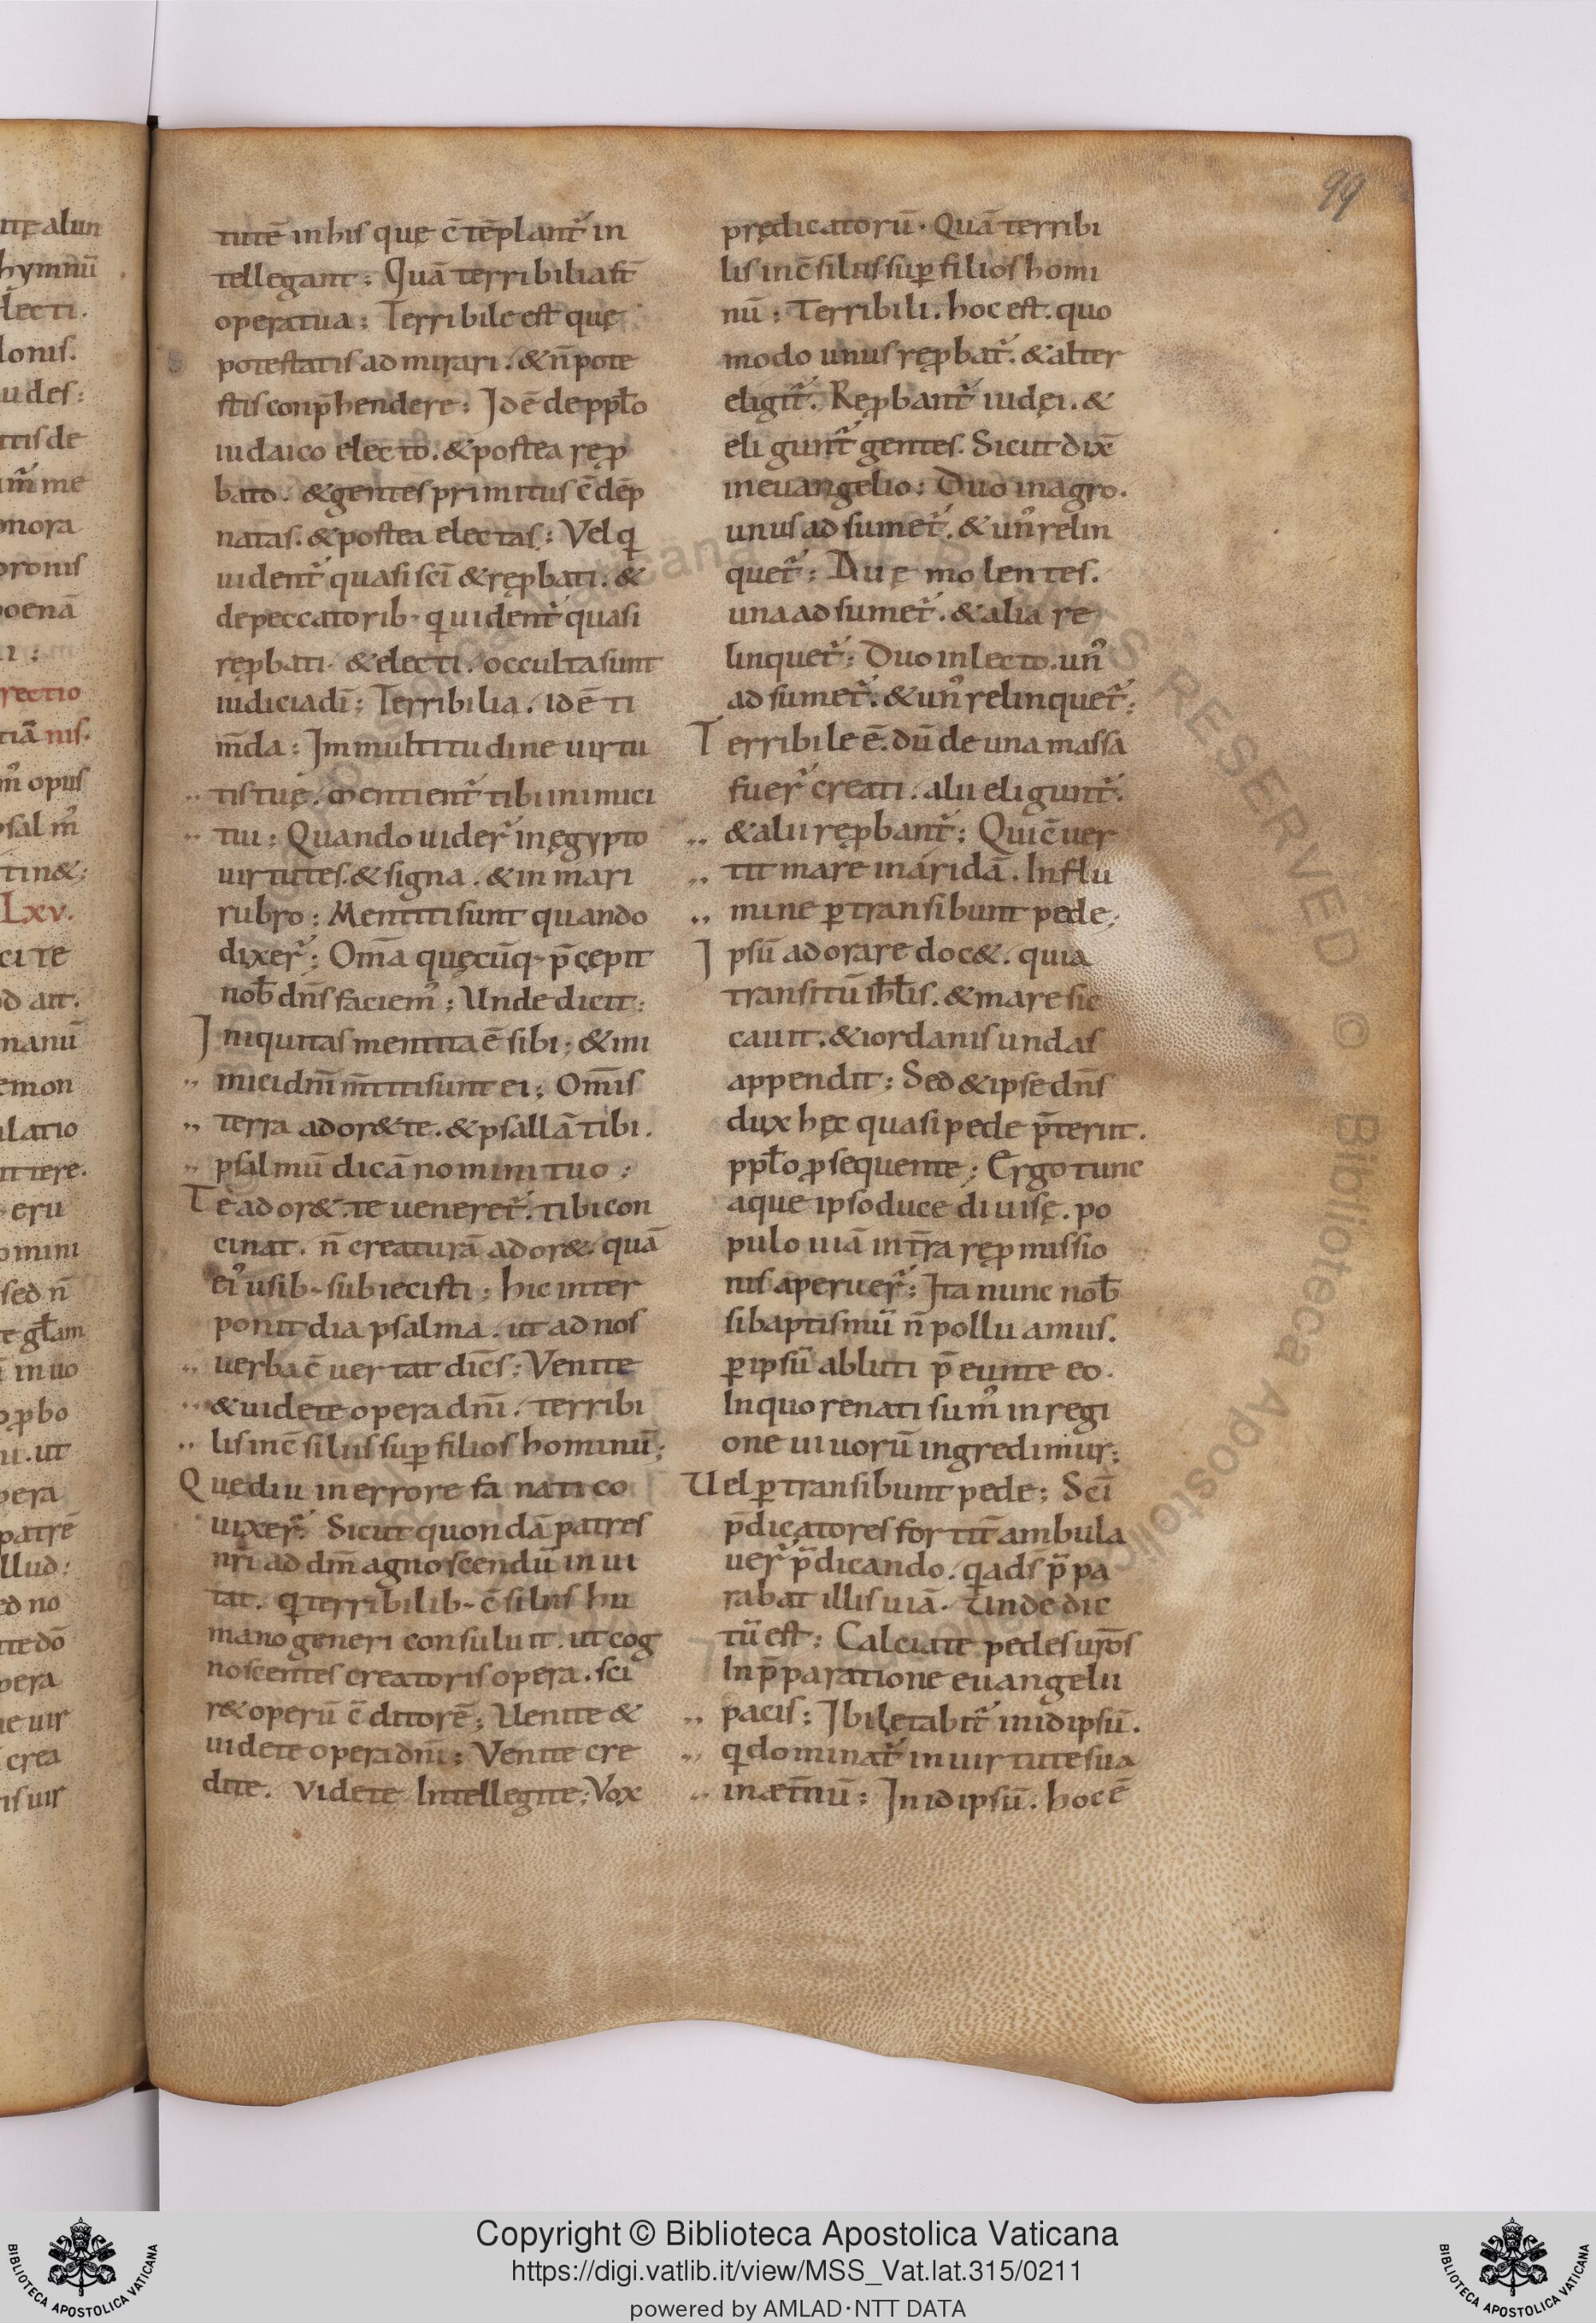 99
tutē in his quę c̄tēplant᷑ in
tellegant : Quā terribilia st̄
opera tua : Terribile est quę
potestatis admirari . & n̄ pote
stis conp̄hendere : Idē de pplo
iudaico electo . & postea rep̱
bato . & gentes primitus c̄dēp
natas . & postea electas : Vel q
uident᷑ quasi sc̄i & rep̱bati . &
de peccatorib; q uident᷑ quasi
rep̱bati . & electi . occulta sunt
iudicia dī : Terribilia . idē ti
m̄da : In multitudine uirtu
tis tuę . mentient᷑ tibi inimici
tui : Quando uider᷑ in ęgypto
uirtutes . & signa . & in mari
rubro : Mentiti sunt quando
dixer᷑ : Om̄a quęcūq; p̄cepit
nob̄ dn̄s faciem᷒ ; Unde dicit :
Iniquitas mentita ē sibi ; & ini
mici dn̄i m̄titi sunt ei ; Om̄is
terra ador& te . & psallā tibi .
psalmū dicā nomini tuo ;
Te ador& . te ueneret᷑ . tibi con
cinat . n̄ creaturā ador& . quā
ei᷒ usib; subiecisti ; hic inter
ponit diapsalma . ut ad nos
uerba c̄uertat dicēs ; Venite
& uidete opera dn̄i . terribi
lis in c̄siliis sup̱ filios hominū ;
Que diu in errore fanatico
uixer᷑ . Sicut quondā patres
nr̄i ad dm̄ agnoscendū inui
tat . q terribilib; c̄siliis hu
mano generi consuluit . ut cog
noscentes creatoris opera . sci
r& operū c̄ditorē ; Uenite &
uidete opera dn̄i ; Venite cre
dite . Videte Intellegite ; Vox
prędicatorū . Quā terribi
lis in c̄siliis sup̱ filios homi
nū ; Terribili . hoc est . quo
modo unus rep̱bat᷑ . & alter
eligit᷑ . Rep̱bant᷑ iudęi . &
eligunt᷑ gentes . Sicut dix̄
in euangelio ; Duo in agro .
unus adsumet᷑ . & un᷒ relin
quet᷑ ; Duę molentes .
una adsumet᷑ . & alia re
linquet᷑ ; Duo in lecto . un᷒
adsumet᷑ . & un᷒ relinquet᷑ ;
Terribile ē . dū de una massa
fuer᷑ creati . alii eligunt᷑ .
& alii rep̱bant᷑ ; Qui c̄uer
tit mare in aridā . In flu
mine p̱transibunt pede ;
Ipsū adorare doc& . quia
transitū isrl̄is . & mare sic
cauit . & iordanis undas
appendit ; Sed & ipse dn̄s
dux hęc quasi pede p̄teriit .
pplo p̱sequente ; Ergo tunc
aque ipso duce diuisę . po
pulo uiā in tr̄a rep̱missio
nis aperuer᷑ ; Ita nunc nob̄
si baptismū n̄ polluamus .
p̱ ipsū abluti p̄eunte eo .
In quo renati sum᷒ in regi
one uiuorū ingredimur ;
Uel p̱transibunt pede ; Sc̄i
p̄dicatores fortit̄ ambula
uer᷑ p̄dicando . q ads̄ p̄pa
rabat illis uiā . Unde dic
tū est ; Calciate pedes uros
In p̄paratione euangelii
pacis ; Ibi lętabit᷑ in idipsū .
q dominat᷑ in uirtute sua
in æt̄nū ; In idipsū . hoc ē
Copyright © Biblioteca Apostolica Vaticana
https://digi.vatlib.it/view/MSS_Vat.lat.315/0211
powered by AMLAD·NTT DATA